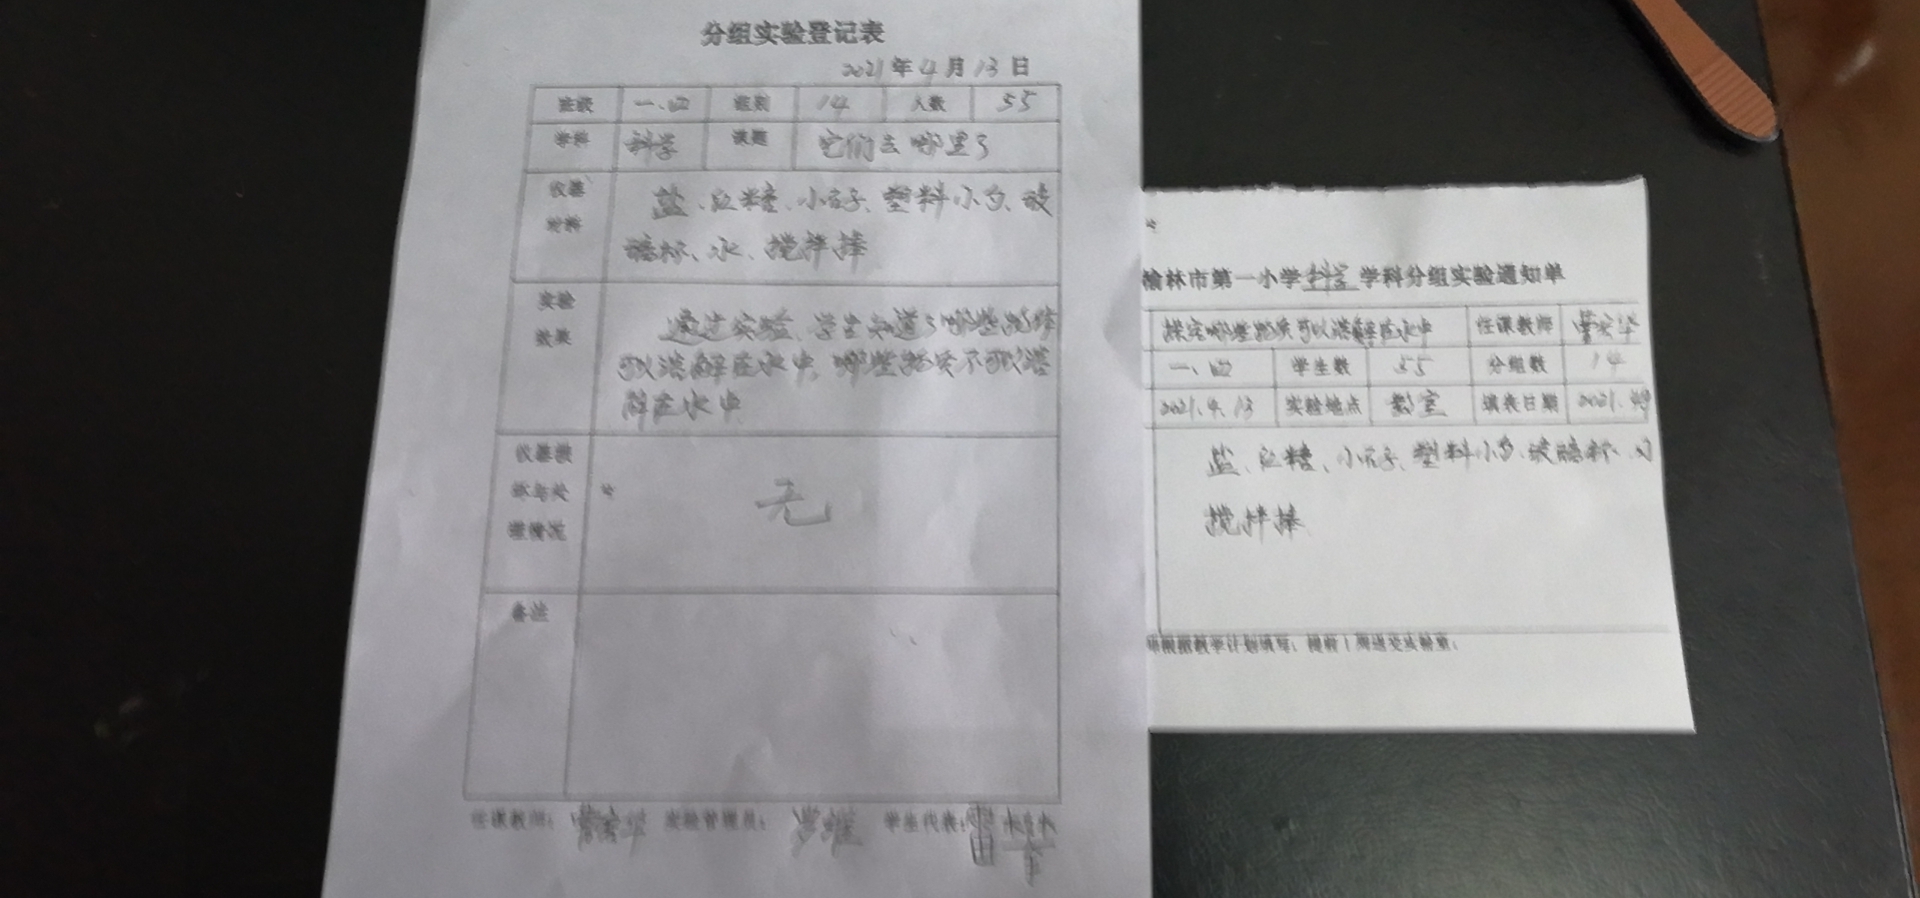 分组实验登记表
2021年4月13日
班级 一、四 组别 14 人数 55
学科 科学 课题 它们去哪里了
仪器 盐、红糖、小石子、塑料小勺、玻
材料 璃杯、水、搅拌棒
实验 通过实验、学生知道了哪些物体
效果 可以溶解在水中,哪些物质不可以溶
解在水中
仪器损
坏与处 无
理情况
备注
任课教师: 实验管理员: 学生代表:
榆林市第一小学科学学科分组实验通知单
探究哪些物质可以溶解在水中 任课教师
一、四 学生数 55 分组数 14
2021.4.13 实验地点 教室 填表日期 2021.4.9
盐、红糖、小石子、塑料小勺、玻璃杯、
搅拌棒
根据教学计划填写,提前1周送交实验室;